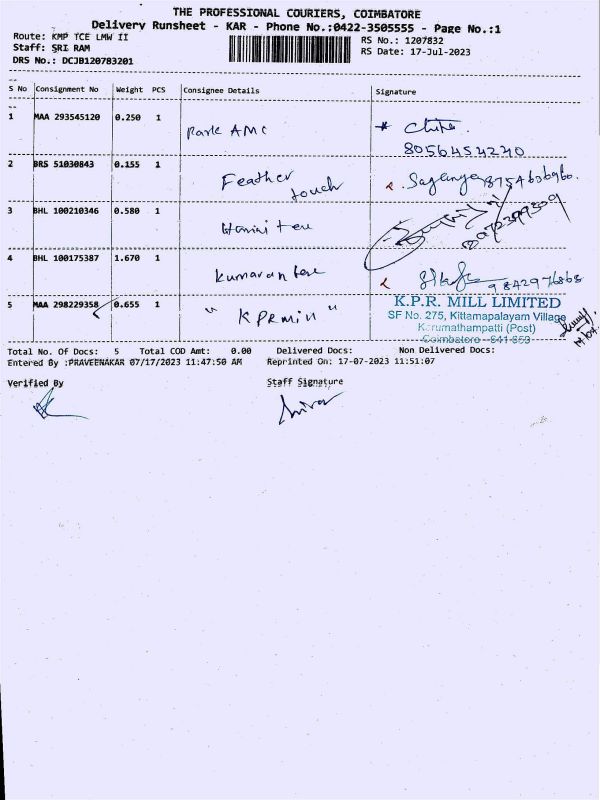 THE PROFESSIONAL COURIERS, COIMBATORE
Delivery Runsheet - KAR - Phone No.:0422-3505555 - Page No.:1
Route: KMP TCE LMW II
RS No.: 1207832
Staff: SRI RAM
RS Date: 17-Jul-2023
DRS No.: DCJB120783201
S No Consignment No Weight PCS Consignee Details Signature
1 MAA 293545120 0.250 1 Park AMC
8056454240
2 BRS 51030843 0.155 1 Feather touch
3 BHL 100210346 0.580 1
4 BHL 100175387 1.670 1 Kumaran
9842976868
5 MAA 298229358 0.655 1 " KPRMill "
K.P.R. MILL LIMITED
SF No. 275, Kittamapalayam Village
Karumathampatti (Post)
Coimbatore - 641 659
Total No. Of Docs: 5 Total COD Amt: 0.00 Delivered Docs: Non Delivered Docs:
Entered By :PRAVEENAKAR 07/17/2023 11:47:50 AM Reprinted On: 17-07-2023 11:51:07
Verified By Staff Signature